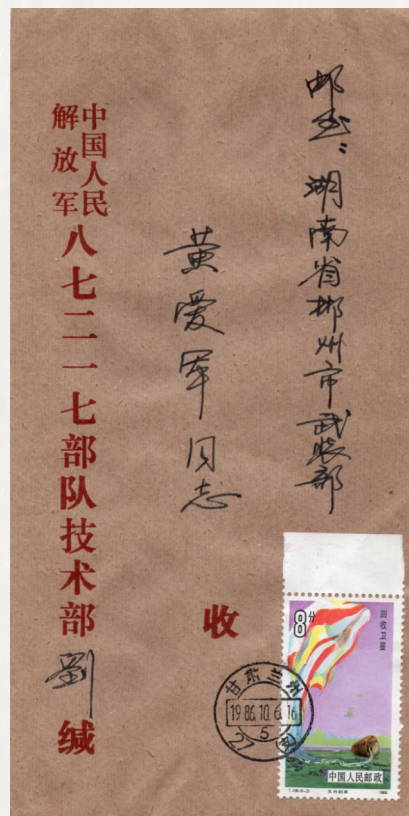 邮至:湖南省郴州市武装部
黄爱军同志
收
中国人民
解放军
八七二一七部队技术部
劉
缄
8分
回收卫星
中国人民邮政
1986
甘肃兰州
1986.10.6.16
5
27